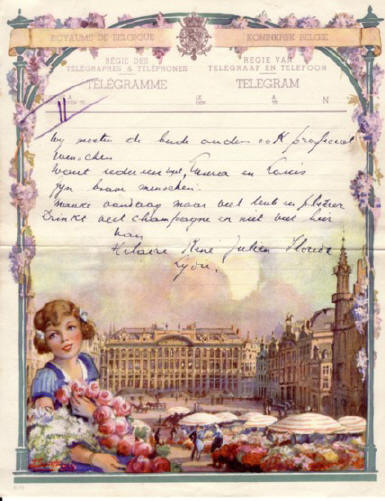 ROYAUME DE BELGIQUE KONINKRIJK BELGIE
RÉGIE DES TÉLÉGRAPHES & TÉLÉPHONES
REGIE VAN TELEGRAAF EN TELEFOON
TÉLÉGRAMME TELEGRAM
N
11
Wij moeten de beide ouders ook proficiat
wenschen
Want iedereen weet, Emma en Louis
zijn brave menschen.
vandaag maar veel
Drinkt veel champagne en niet veel bier
van
Hilaire René Julien
Lyon.